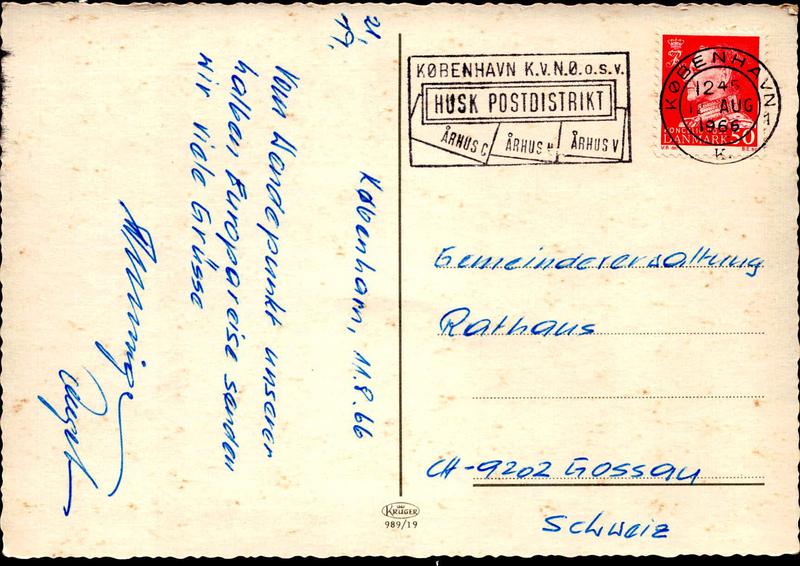 21.
19.
København, 11.8.66
Vom Wendepunkt unserer
halben Europareise senden
wir viele Grüsse
KØBENHAVN K.V.N.Ø.o.s.v.
HUSK POSTDISTRIKT
ÅRHUS C ÅRHUS N ÅRHUS V
KØBENHAVN
1245
11 AUG
1966
K.
DANMARK 50
Gemeindeverwaltung
Rathaus
CH-9202 Gossau
Schweiz
KRÜGER
989/19